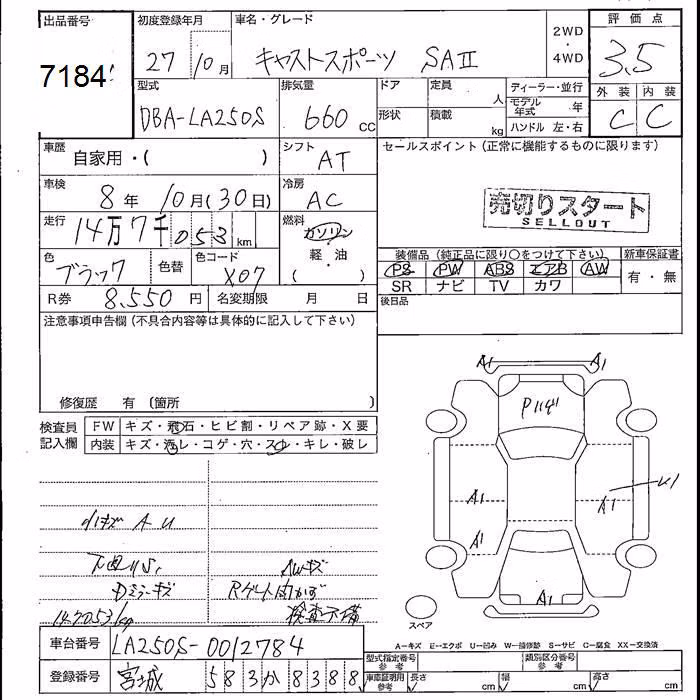 出品番号 初度登録年月 車名・グレード 2WD ・ 4WD 評価点
7184 27 10月 キャストスポーツ SAⅡ 3.5
型式 排気量 ドア 定員 人 ディーラー・並行 外装 内装
DBA-LA250S 660 cc 形状 積載 kg モデル年式 年 C C
ハンドル 左・右
車歴 自家用・( ) シフト AT セールスポイント(正常に機能するものに限ります)
車検 8年 10月(30日) 冷房 AC
売切りスタート
SELLOUT
走行 14万7千053km 燃料 ガソリン
軽・油
( ・ )
色 ブラック 色替 色コード X07
装備品(純正品に限り○をつけて下さい) 新車保証書
PS PW ABS エアB AW 有・無
SR ナビ TV カワ
R券 8,550円 名変期限 月 日 後日品
注意事項申告欄(不具合内容等は具体的に記入して下さい)
修復歴 有 (箇所 )
検査員記入欄 FW キズ・飛石・ヒビ割・リペア跡・X要
内装 キズ・汚レ・コゲ・穴・スレ・キレ・破レ
A1 A1
P
A1 A1 U1
A1
A1
小キズ A U
下廻りS,
Dミラーキズ
147053km
AWキズ
Rゲート内かざ
検査不備
スペア
A−キズ E−エクボ U−凹み W−補修跡 S−サビ C−腐食 XX−交換済
車台番号 LA250S-0012784
登録番号 宮城 583か8388
型式指定番号 参考 類別区分番号 参考
車庫証明用 参考 長さ cm 幅 cm 高さ cm